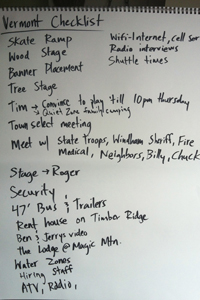 Vermont Checklist
Skate Ramp
Wifi-Internet, cell ser
Wood Stage
Radio interviews
Banner Placement
Shuttle times
Tree Stage
Tim → Convince to play 'till 10pm thursday
↳ Quiet Zone family camping
Town select meeting
Meet w/ State Troops, Windham Sheriff, Fire
Medical, Neighbors, Billy, Chuck
Stage → Roger
Security
47' Bus & Trailers
Rent house on Timber Ridge
Ben & Jerrys video
The Lodge @ Magic Mtn.
Water Zones
Hiring Staff
ATV, Radio,